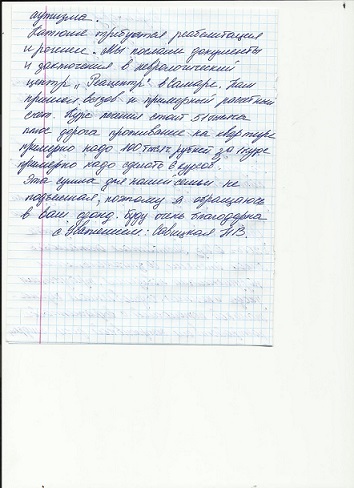 аутизма.
Катюше требуется реабилитация
и лечение. Мы послали документы
и заключения в неврологический
центр „Реацентр" в Самаре. Нам
пришел вызов и примерный расчетный
счет. Курс лечения стоит 51 тысяча
плюс дорога проживание на квартире
примерно надо 100 тысяч рублей за 1 курс
примерно надо сделать курсов.
Эта сумма для нашей семьи не
подъемная, поэтому я обращаюсь
в ваш фонд. Буду очень благодарна
с Уважением: Савицкая Н.В.